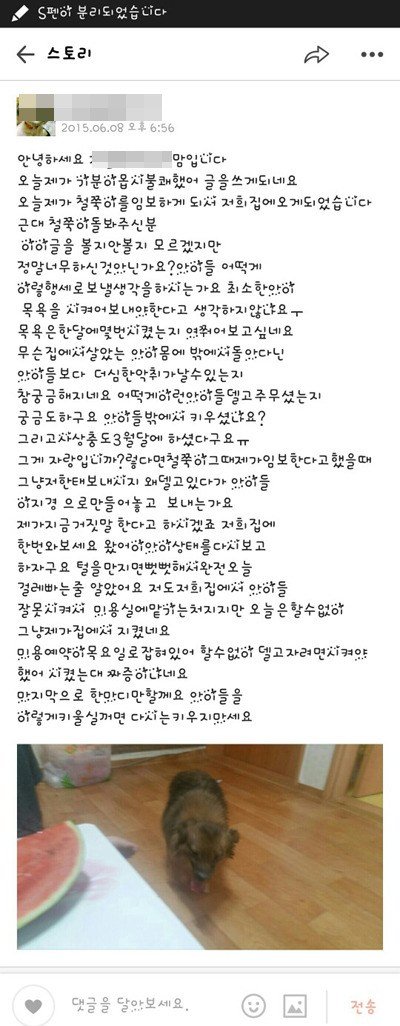 S펜이 분리되었습니다
스토리
2015.06.08 오후 6:56
안녕하세요 맘입니다
오늘제가 기분이몹시불쾌했어 글을쓰게되네요
오늘제가 철쭉이를임보하게 되서 저희집에오게되었습니다
근대 철쭉이돌봐주신분
이아글을 볼지안볼지 모르겠지만
정말너무하신것안닌가요?안이들 어떻게
이렇행세로보낼생각을하시는가요 최소한안이
목욕을 시켜어보내야한다고 생각하지않나요ㅜ
목욕은한달에몇번시켰는지 여쭈어보고싶네요
무슨집에서살았는 안이몸에 밖에서돌안다닌
안이들보다 더심한악취가날수있는지
참궁금해지네요 어떻게이런안이들델고주무셨는지
궁금도하구요 안이들밖에서 키우셨나요?
그리고사상충도3월달에 하셨다구요ㅠ
그게 자랑입니까?렇다면철쭉이그때제가임보한다고했을때
그냥저한태보내시지 왜델고있다가 안이들
이지경 으로만들어놓고 보내는가요
제가지금거짓말 한다고 하시겠죠 저희집에
한번와보세요 왔어이안이상태를다시보고
하자구요 털을만지면뻣뻣해서완전오늘
걸레빠는줄 알았어요 저도저희집에서 안이들
잘못시켜서 미용실에맡기는처지지만 오늘은할수없이
그냥제가집에서 지켰네요
미용예약이목요일로잡혀있어 할수없이 델고자려면시켜야
했어 시켰는대 짜증이나네요
마지막으로 한마디만할께요 안이들을
이렇게키울실꺼면 다시는키우지만세요
댓글을 달아보세요.
전송